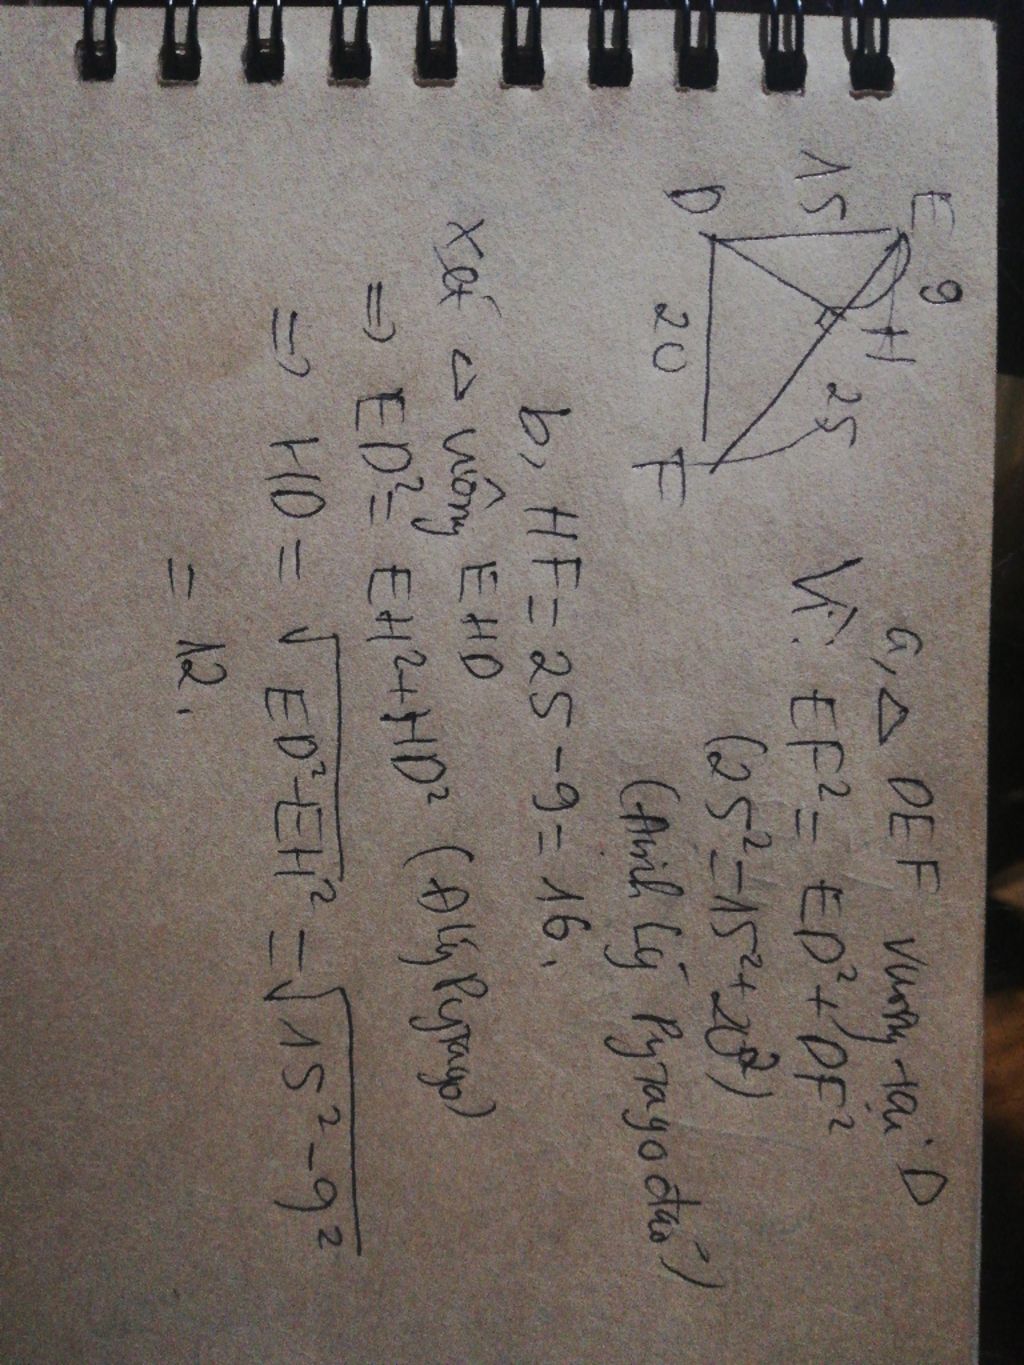 E
9
H
15
25
D
20
F
a, △ DEF vuông tại D
Vì: EF² = ED² + DF²
(25² = 15² + 20²)
(Định Lý Pytago đảo)
b, HF = 25 - 9 = 16.
Xét △ vuông EHD
=> ED² = EH² + HD² (Đlý Pytago)
=> HD = √ED² - EH² = √15² - 9²
= 12.